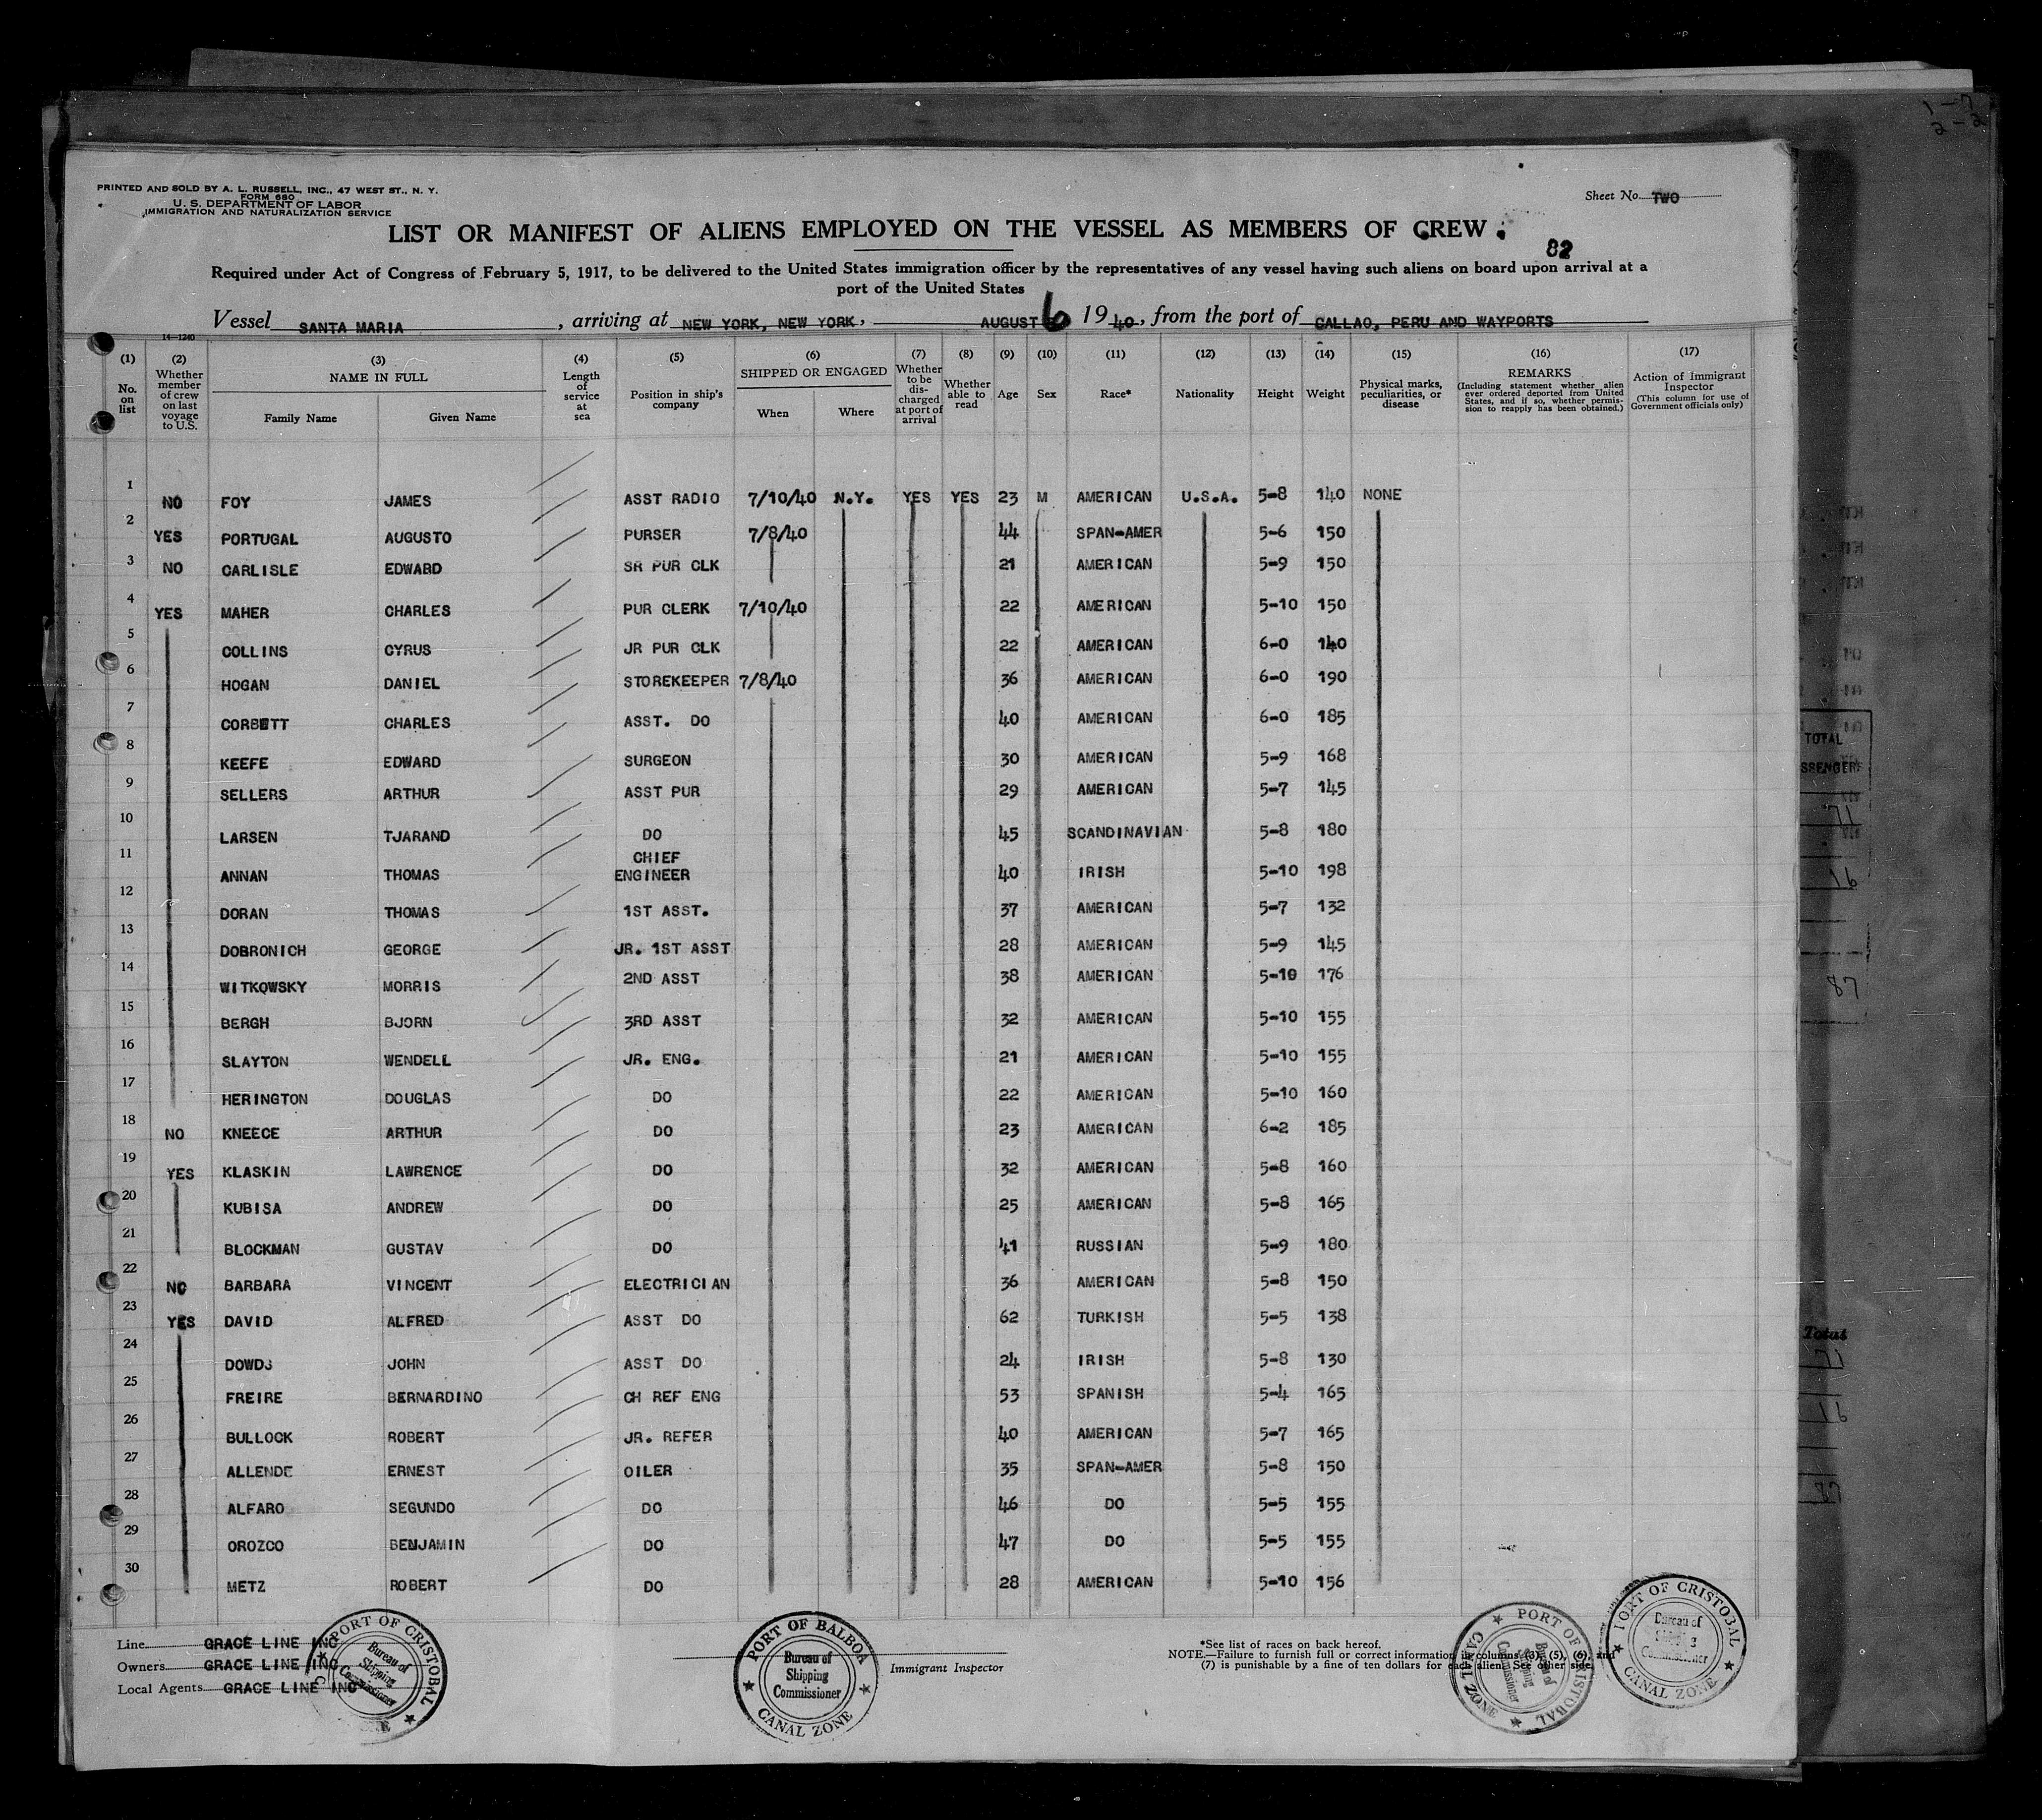 1-7
2-2
PRINTED AND SOLD BY A. L. RUSSELL, INC., 47 WEST ST., N. Y.
FORM 680
U. S. DEPARTMENT OF LABOR
IMMIGRATION AND NATURALIZATION SERVICE
Sheet No. TWO
LIST OR MANIFEST OF ALIENS EMPLOYED ON THE VESSEL AS MEMBERS OF CREW
82
Required under Act of Congress of February 5, 1917, to be delivered to the United States immigration officer by the representatives of any vessel having such aliens on board upon arrival at a
port of the United States
Vessel SANTA MARIA, arriving at NEW YORK, NEW YORK, AUGUST 6 1940, from the port of CALLAO, PERU AND WAYPORTS
14—1240
(1) No. on list (2) Whether member of crew on last voyage to U.S. (3) NAME IN FULL Family Name Given Name (4) Length of service at sea (5) Position in ship's company (6) SHIPPED OR ENGAGED When Where (7) Whether to be discharged at port of arrival (8) Whether able to read (9) Age (10) Sex (11) Race* (12) Nationality (13) Height (14) Weight (15) Physical marks, peculiarities, or disease (16) REMARKS (Including statement whether alien ever ordered deported from United States, and if so, whether permission to reapply has been obtained.) (17) Action of Immigrant Inspector (This column for use of Government officials only)
1 NO FOY JAMES ASST RADIO 7/10/40 N.Y. YES YES 23 M AMERICAN U.S.A. 5-8 140 NONE
2 YES PORTUGAL AUGUSTO PURSER 7/8/40 44 SPAN-AMER 5-6 150
3 NO CARLISLE EDWARD SR PUR CLK 21 AMERICAN 5-9 150
4 YES MAHER CHARLES PUR CLERK 7/10/40 22 AMERICAN 5-10 150
5 COLLINS CYRUS JR PUR CLK 22 AMERICAN 6-0 140
6 HOGAN DANIEL STOREKEEPER 7/8/40 36 AMERICAN 6-0 190
7 CORBETT CHARLES ASST. DO 40 AMERICAN 6-0 185
8 KEEFE EDWARD SURGEON 30 AMERICAN 5-9 168
9 SELLERS ARTHUR ASST PUR 29 AMERICAN 5-7 145
10 LARSEN TJARAND DO 45 SCANDINAVIAN 5-8 180
11 ANNAN THOMAS CHIEF ENGINEER 40 IRISH 5-10 198
12 DORAN THOMAS 1ST ASST. 37 AMERICAN 5-7 132
13 DOBRONICH GEORGE JR. 1ST ASST 28 AMERICAN 5-9 145
14 WITKOWSKY MORRIS 2ND ASST 38 AMERICAN 5-10 176
15 BERGH BJORN 3RD ASST 32 AMERICAN 5-10 155
16 SLAYTON WENDELL JR. ENG. 21 AMERICAN 5-10 155
17 HERINGTON DOUGLAS DO 22 AMERICAN 5-10 160
18 NO KNEECE ARTHUR DO 23 AMERICAN 6-2 185
19 YES KLASKIN LAWRENCE DO 32 AMERICAN 5-8 160
20 KUBISA ANDREW DO 25 AMERICAN 5-8 165
21 BLOCKMAN GUSTAV DO 41 RUSSIAN 5-9 180
22 NO BARBARA VINCENT ELECTRICIAN 36 AMERICAN 5-8 150
23 YES DAVID ALFRED ASST DO 62 TURKISH 5-5 138
24 DOWDS JOHN ASST DO 24 IRISH 5-8 130
25 FREIRE BERNARDINO CH REF ENG 53 SPANISH 5-4 165
26 BULLOCK ROBERT JR. REFER 40 AMERICAN 5-7 165
27 ALLENDE ERNEST OILER 35 SPAN-AMER 5-8 150
28 ALFARO SEGUNDO DO 46 DO 5-5 155
29 OROZCO BENJAMIN DO 47 DO 5-5 155
30 METZ ROBERT DO 28 AMERICAN 5-10 156
Line GRACE LINE INC
Owners GRACE LINE INC
Local Agents GRACE LINE INC
PORT OF CRISTOBAL
Bureau of
Shipping
Commissioner
PORT OF BALBOA
Bureau of
Shipping
Commissioner
CANAL ZONE
Immigrant Inspector
*See list of races on back hereof.
NOTE.—Failure to furnish full or correct information in columns (3), (5), (6), and
(7) is punishable by a fine of ten dollars for each alien. See other side.
PORT OF CRISTOBAL
Bureau of
Shipping
Commissioner
CANAL ZONE
PORT OF CRISTOBAL
Bureau of
Shipping
Commissioner
CANAL ZONE
TOTAL
Total